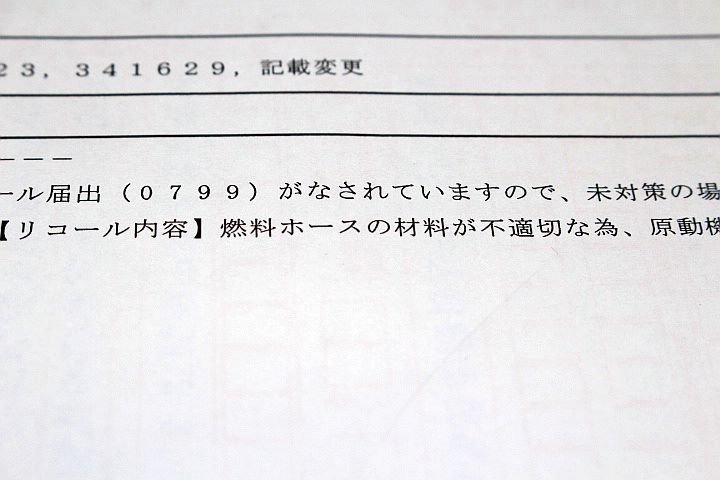 ２３，３４１６２９，記載変更
－－－
ール届出（０７９９）がなされていますので、未対策の場
【リコール内容】燃料ホースの材料が不適切な為、原動機